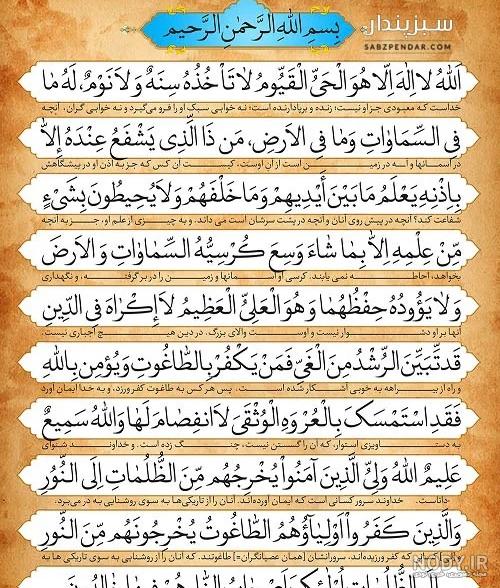 سبزپندار
SABZPENDAR.COM
بِسمِ اللهِ الرَّحمٰنِ الرَّحیمِ
اَللهُ لا اِلٰهَ اِلّا هُوَ الْحَیُّ الْقَیُّومُ لاَ تَأْخُذُهُ سِنَةٌ وَ لاَ نَوْمٌ، لَهُ مَا
خداست که معبودی جز او نیست؛ زنده و برپادارنده است؛ نه خوابی سبک او را فرو می‌گیرد و نه خوابی گران. آنچه
فِی السَّمَاوَاتِ وَمَا فِی الاَرضِ، مَن ذَا الَّذِی یَشْفَعُ عِنْدَهُ إِلاَّ
در آسمانها و آنچه در زمین است از آنِ اوست. کیست آن کس که جز به اذن او در پیشگاهش
بِإِذْنِهِ یَعْلَمُ مَا بَیْنَ أَیْدِیهِمْ وَمَا خَلْفَهُمْ وَلاَ یُحِیطُونَ بِشَیْءٍ
شفاعت کند؟ آنچه در پیش روی آنان و آنچه در پشت سرشان است می داند. و به چیزی از علم او، جز به آنچه
مِّنْ عِلْمِهِ إِلاَّ بِمَا شَاءَ وَسِعَ کُرْسِیُّهُ السَّمَاوَاتِ وَ الاَرضَ
بخواهد، احاطه نمی یابند. کرسی او آسمانها و زمین را در بر گرفته، و نگهداری
وَ لاَ یَؤُودُهُ حِفْظُهُمَا وَ هُوَ الْعَلِیُّ الْعَظِیمُ لاَ إِکْرَاهَ فِی الدِّینِ
آنها بر او دشوار نیست و اوست والای بزرگ. در دین هیچ اجباری نیست.
قَد تَّبَیَّنَ الرُّشْدُ مِنَ الْغَیِّ فَمَنْ یَکْفُرْ بِالطَّاغُوتِ وَیُؤْمِن بِاللهِ
و راه از بیراهه به خوبی آشکار شده است. پس هر کس به طاغوت کفر ورزد، و به خدا ایمان آورد
فَقَدِ اسْتَمْسَکَ بِالْعُرْوَةِ الْوُثْقَیَ لاَ انفِصَامَ لَهَا وَاللهُ سَمِیعٌ
به دستاویزی استوار، که آن را گسستن نیست، چنگ زده است. و خداوند شنوای
عَلِیمٌ اللهُ وَلِیُّ الَّذِینَ آمَنُواْ یُخْرِجُهُم مِّنَ الظُّلُمَاتِ إِلَی النُّوُرِ
داناست. خداوند سرور کسانی است که ایمان آورده‌اند. آنان را از تاریکی ها به سوی روشنایی به در می‌برد.
وَالَّذِینَ کَفَرُواْ أَوْلِیَآؤُهُمُ الطَّاغُوتُ یُخْرِجُونَهُم مِّنَ النُّورِ
که کفر ورزیده‌اند، سرورانشان [همان عصیانگران=] طاغوتند. که آنان را از روشنایی به سوی تاریکی ها به
NODY.IR